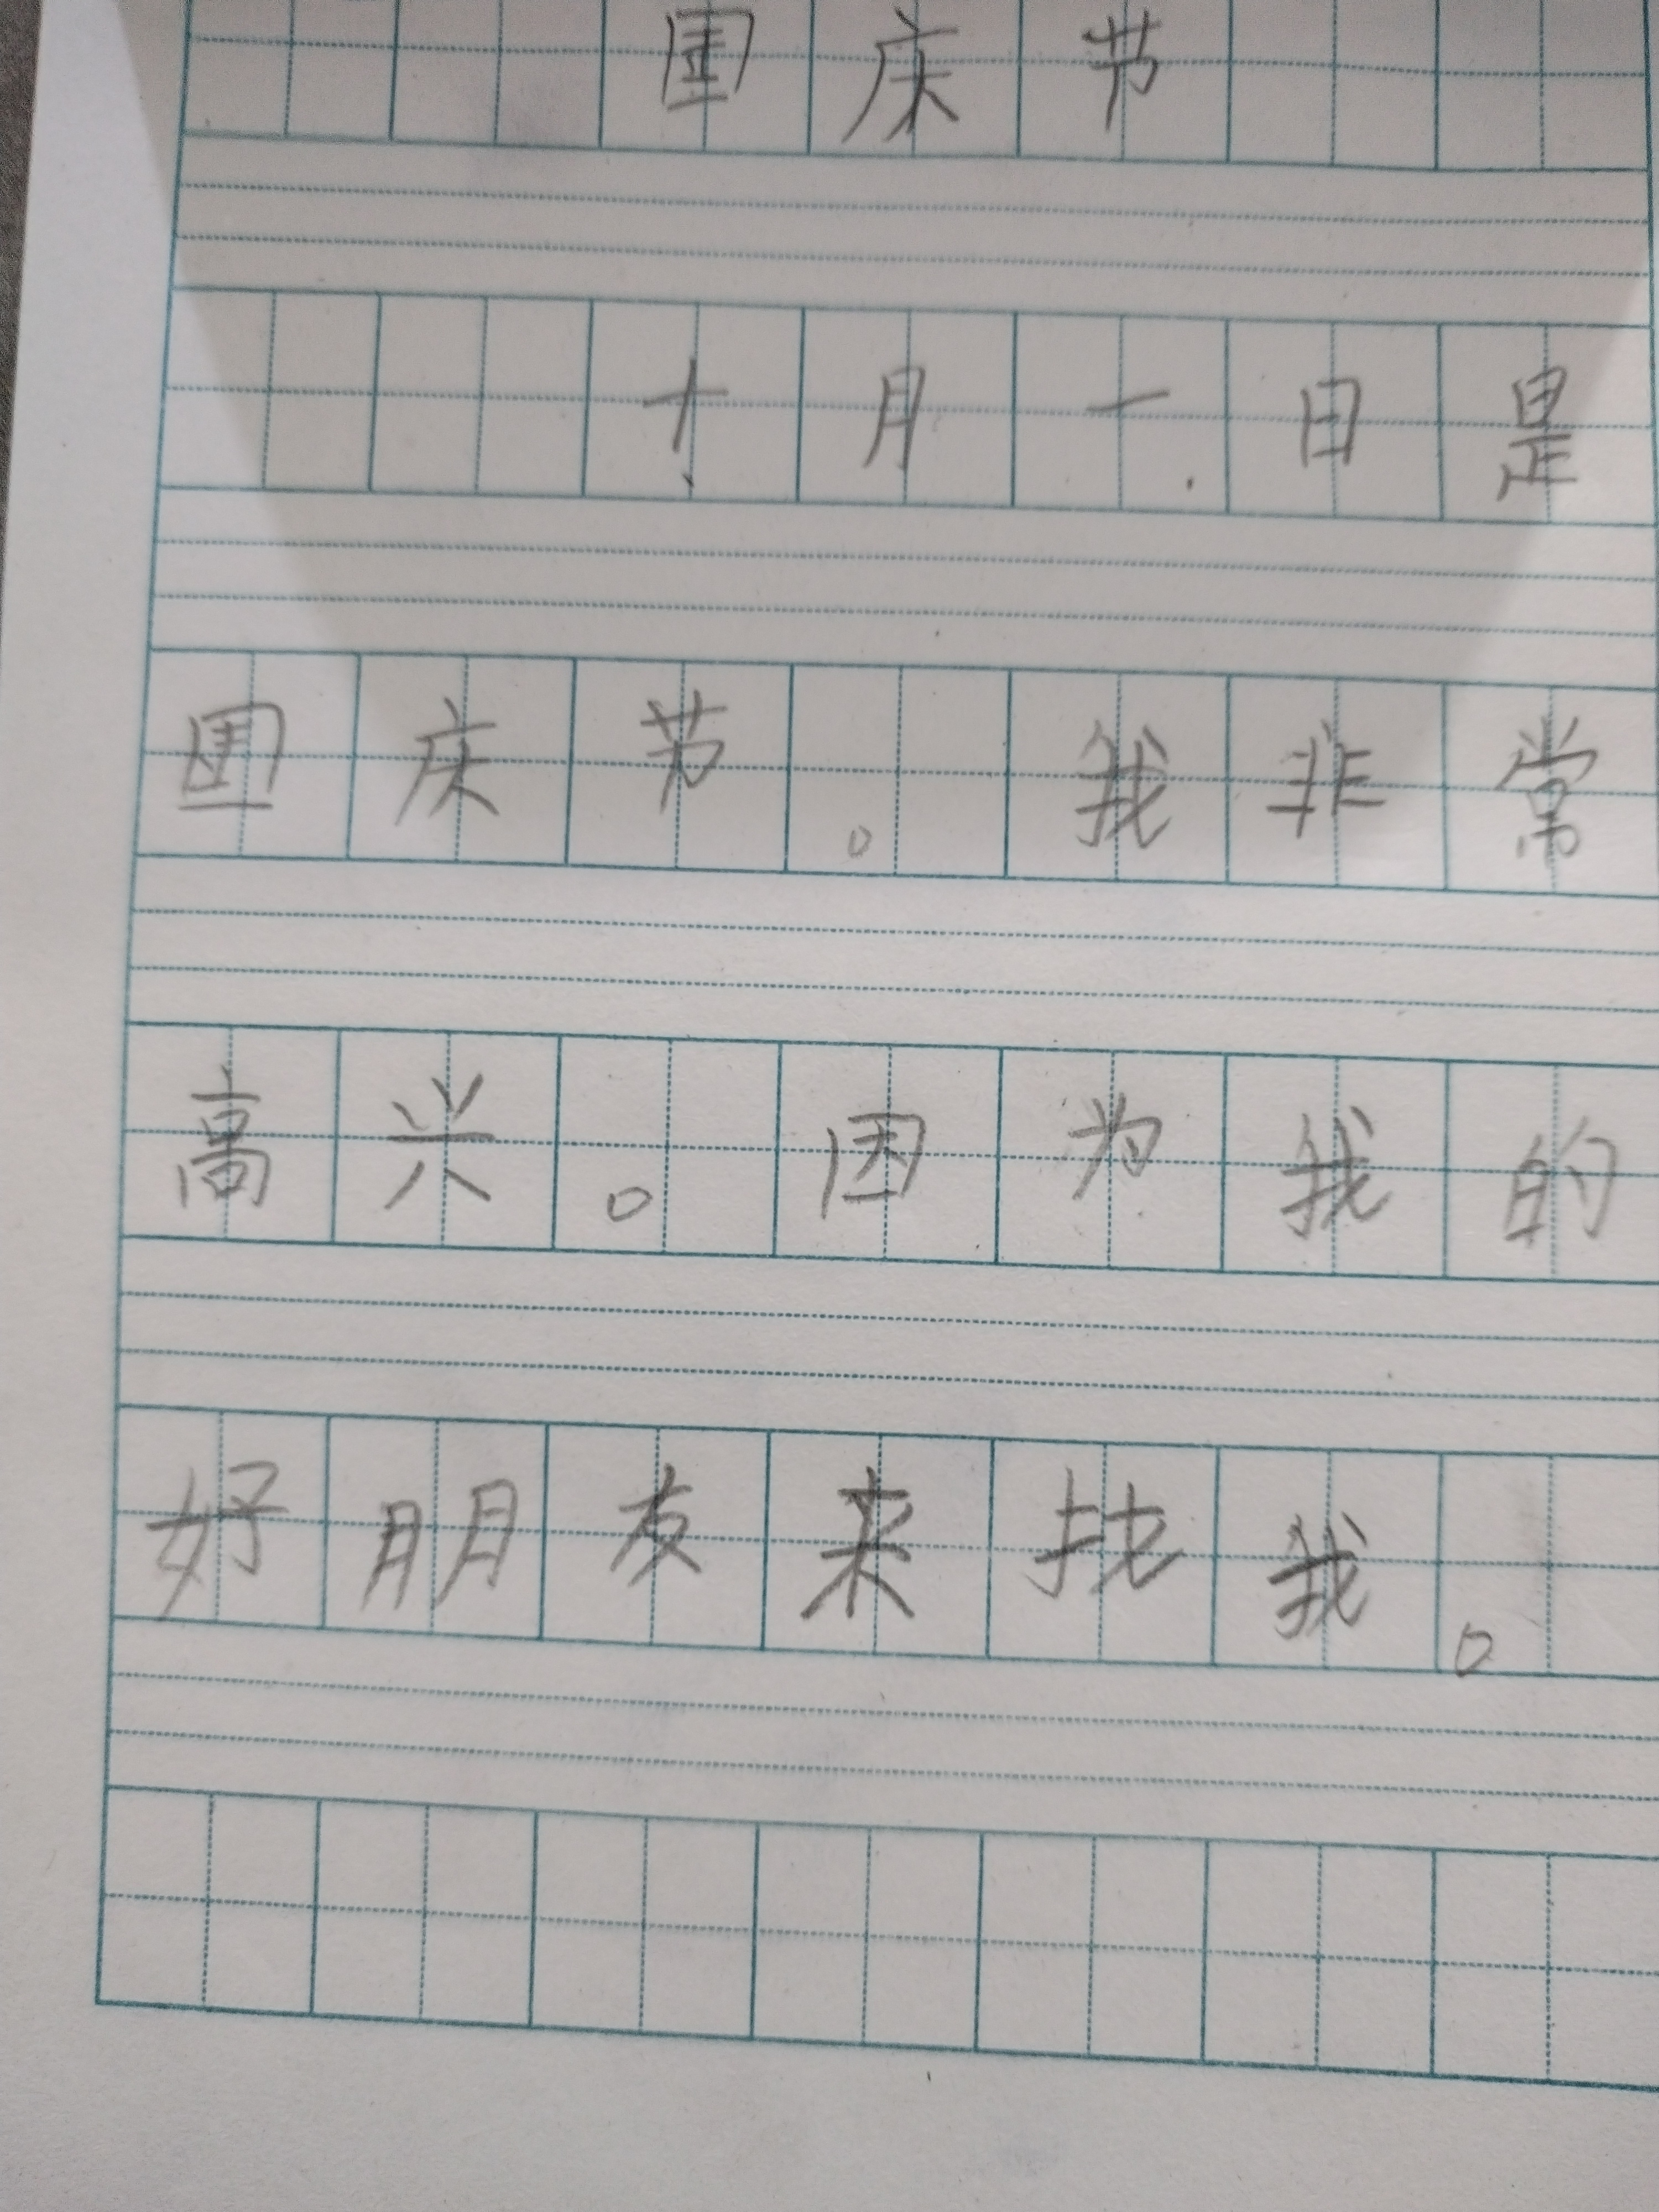 国庆节
十月一日是
国庆节。我非常
高兴。因为我的
好朋友来找我。